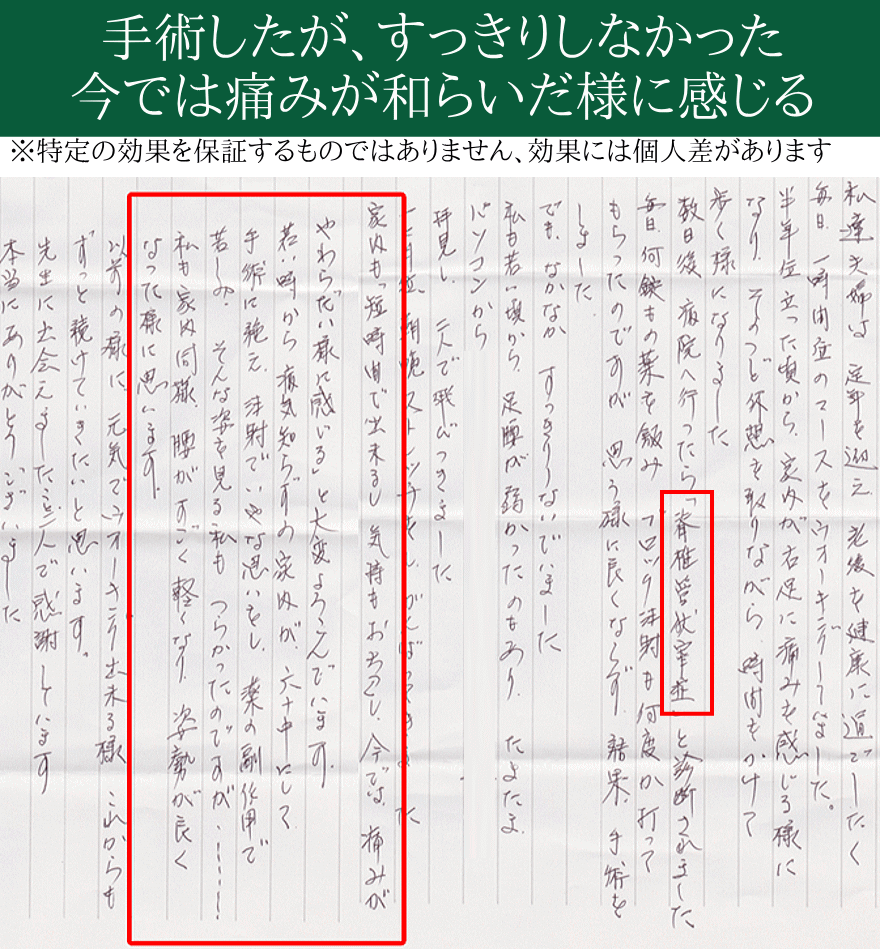 手術したが、すっきりしなかった
今では痛みが和らいだ様に感じる
※特定の効果を保証するものではありません、効果には個人差があります
私達夫婦は、定年を迎え、老後を健康に過ごしたく
毎日、一時間位のコースをウオーキングしていました。
半年位立った頃から、家内が右足に痛みを感じる様に
なり、そのつど休憩を取りながら、時間をかけて
歩く様になりました
数日後、病院へ行ったら「脊椎管狭窄症」と診断されました
毎日、何錠もの薬を飲み ブロック注射も何度か打って
もらったのですが、思う様に良くならず、結果、手術を
しました。
でも、なかなか すっきりしないでいました
私も若い頃から、足腰が弱かったのもあり、たよたま
パソコンから
拝見し、二人で飛びつきました
朝晩ストレッチをし、がんばってきました
家内も「短時間で出来るし、気持もおちつくし、今では、痛みが
やわらだい様に感じる」と大変よろこんでいます。
若い時から病気知らずの家内が、六十中にして
手術に絶え、注射でいやな思いをし、薬の副作用で
苦しみ、そんな姿を見る私も つらかったのですが……
私も家内同様、腰がすごく軽くなり、姿勢が良く
なった様に思います。
以前の様に、元気でウオーキング出来る様 これからも
ずっと続けていきたいと思います。
先生に出会えました事、二人で感謝しています
本当にありがとうございました